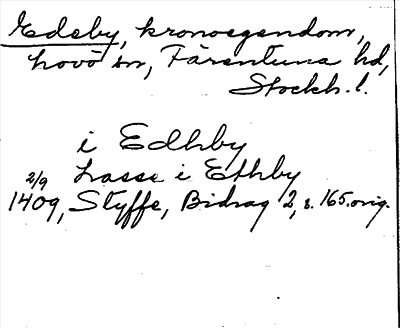 Edeby, kronoegendom,
Lovö sn, Färentuna hd,
Stockh. l.
i Edhby
Lasse i Ethby
2/9 1409, Styffe, Bidrag 2, s. 165. orig.